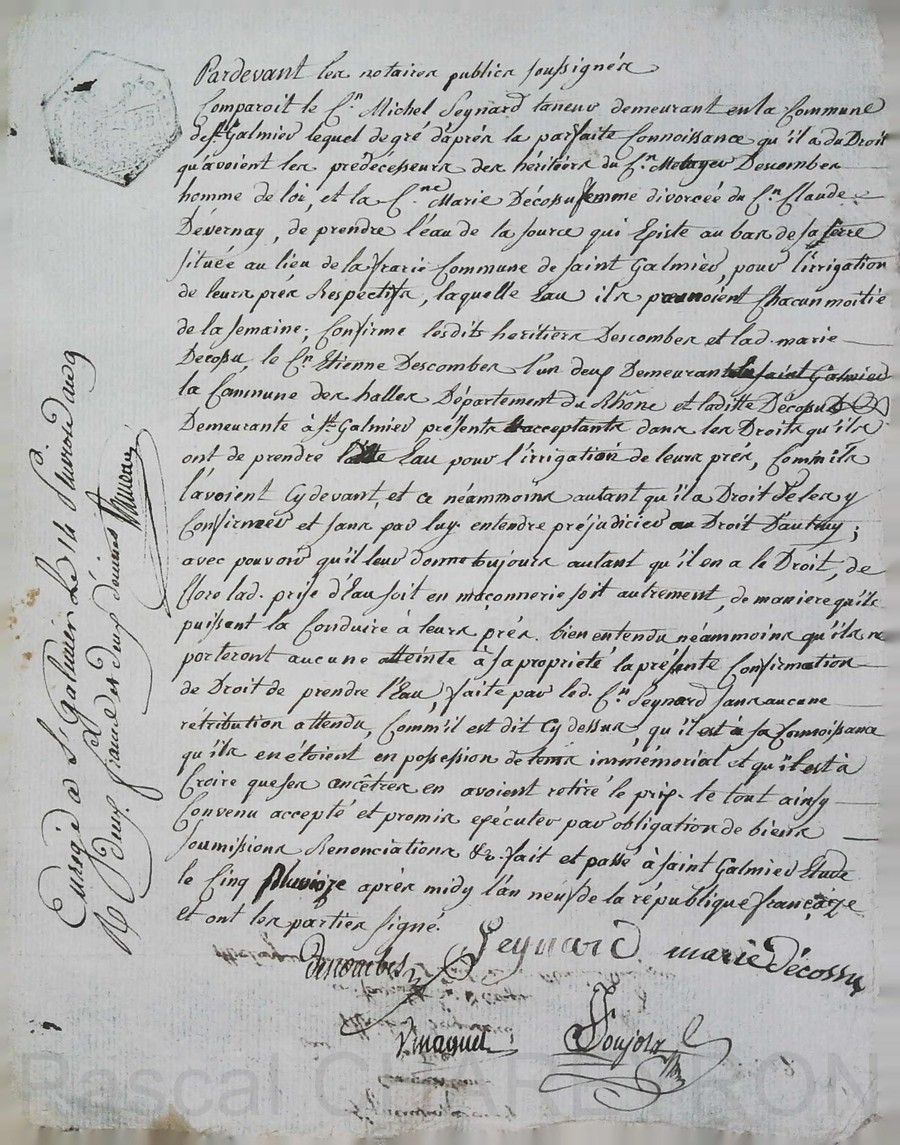 Pardevant les notaires publics soussignés
Comparoit le C.n Michel Peynard taneur demeurant en la Commune
de St. Galmier lequel de gré d'après la parfaite Connoissance qu'il a du Droit
qu'avoient les prédécesseurs des héritiers du C.n Descombes
homme de loi, et la C.ne Marie Décossu femme divorcée du C.n Claude
Dévernay, de prendre l'eau de la source qui Existe au bas de sa terre
située au lieu de la Commune de saint Galmier, pour l'irrigation
de leurs prés Respectifs, laquelle Eau ils prenoient Chacun moitié
de la semaine; Confirme lesdits heritiers Descombes et lad. marie
Decossu, le C.n Etienne Descombes l'un deux Demeurant
la Commune des halles Département du Rhône et laditte Décossu
Demeurante à St. Galmier présents & acceptants dans les Droits qu'ils
ont de prendre Eau pour l'irrigation de leurs prés, Comm'ils
l'avoient Cy devant, et ce néammoins autant qu'il a Droit de les y
Confirmer et sans par luy entendre préjudicier au Droit D'autruy;
avec pouvoir qu'il leur donne toujours autant qu'il en a le Droit, de
Clore lad. prise d'Eau soit en maçonnerie soit autrement, de maniere qu'ils
puissent la Conduire à leurs prés. bien entendu néammoins qu'ils ne
porteront aucune atteinte à sa propriété la présente Confirmation
de Droit de prendre l'Eau, faite par led. C.n Peynard sans aucune
rétribution attendu, Comm'il est dit Cy dessus, qu'il est à sa Connoissance
qu'ils en étoient en possession de tems immémorial et qu'il est à
Croire que ses ancêtres en avoient retiré le prix. le tout ainsy
Convenu accepté et promis exécuter par obligation de biens
soumissions Renonciations &c. fait et passé à saint Galmier Etude
le Cinq pluvioze après midy l'an neuf de la république françaize
Et ont les parties signé.
Descombes Peynard marie Décossu
Ponjols
Enregé a St Galmier Le 14 pluviose an 9
R deux francs deux décimes
Pascal CHAREYRON